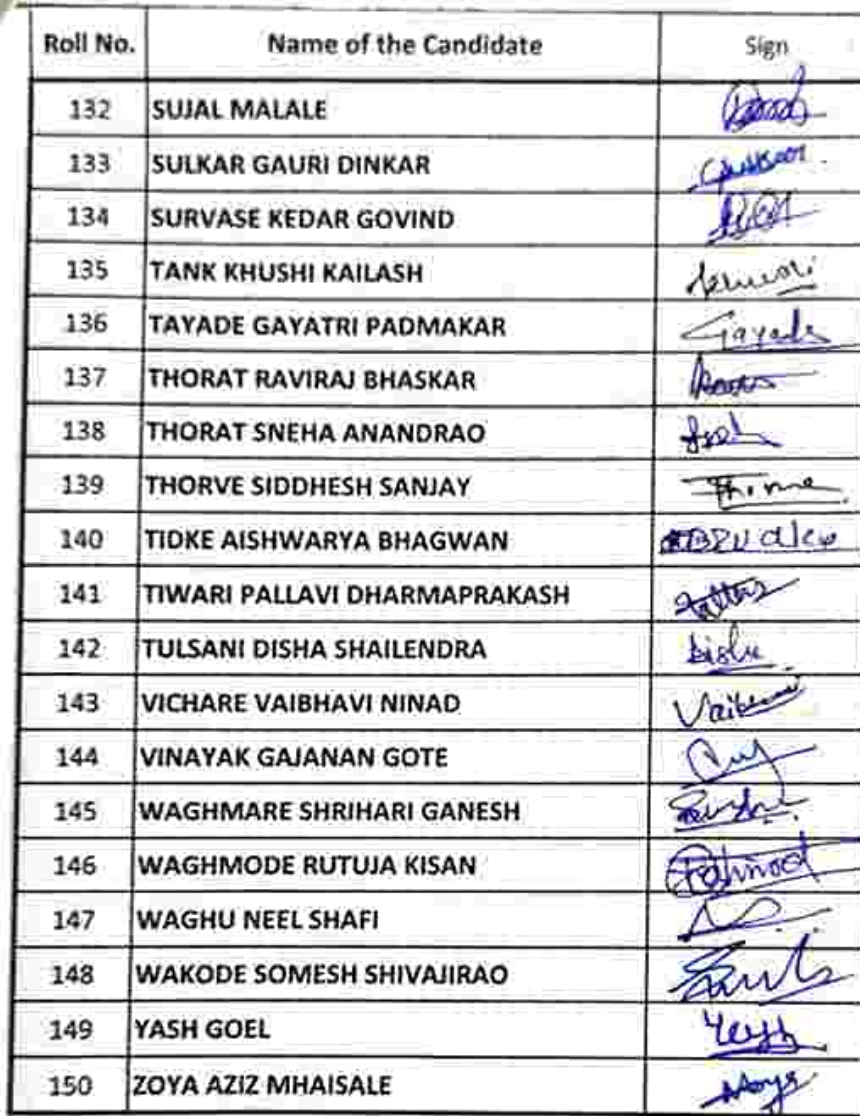 Roll No. Name of the Candidate Sign
132 SUJAL MALALE
133 SULKAR GAURI DINKAR
134 SURVASE KEDAR GOVIND
135 TANK KHUSHI KAILASH
136 TAYADE GAYATRI PADMAKAR
137 THORAT RAVIRAJ BHASKAR
138 THORAT SNEHA ANANDRAO
139 THORVE SIDDHESH SANJAY
140 TIDKE AISHWARYA BHAGWAN
141 TIWARI PALLAVI DHARMAPRAKASH
142 TULSANI DISHA SHAILENDRA
143 VICHARE VAIBHAVI NINAD
144 VINAYAK GAJANAN GOTE
145 WAGHMARE SHRIHARI GANESH
146 WAGHMODE RUTUJA KISAN
147 WAGHU NEEL SHAFI
148 WAKODE SOMESH SHIVAJIRAO
149 YASH GOEL
150 ZOYA AZIZ MHAISALE